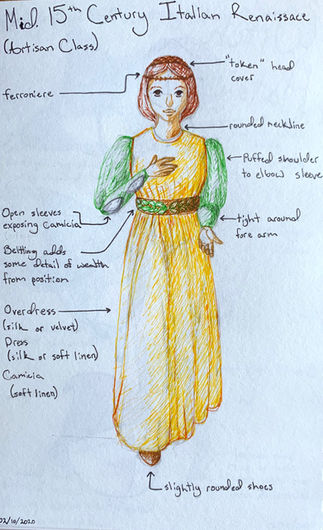 Mid. 15th Century Italian Renaissace
(Artisan Class)
"token" head
cover
ferroniere
rounded neckline
Puffed shoulder
to elbow sleeve
Open sleeves
exposing Camicia
tight around
fore arm
Belting adds
some detail of wealth
from position
Overdress
(silk or velvet)
Dress
(silk or soft linen)
Camicia
(soft linen)
slightly rounded shoes
02/10/2020